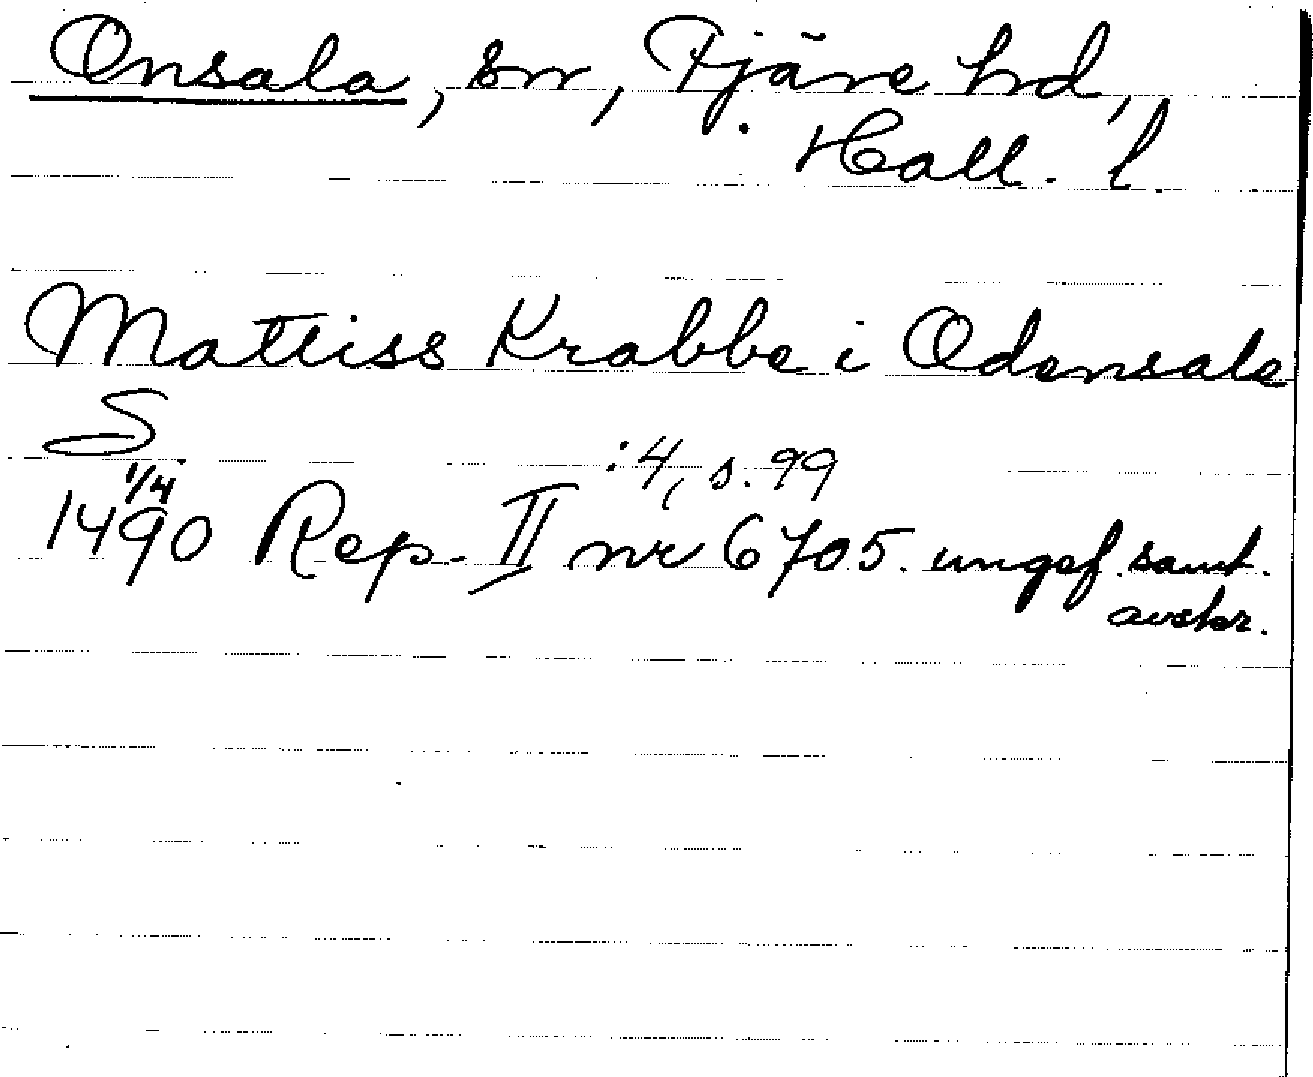 Onsala, sn, Fjäre hd,
Hall. l.
Mattiss Krabbe i Odensale
S.
1/4 :4, s. 99
1490 Rep. II nr 6705. ungef. samt.
avskr.